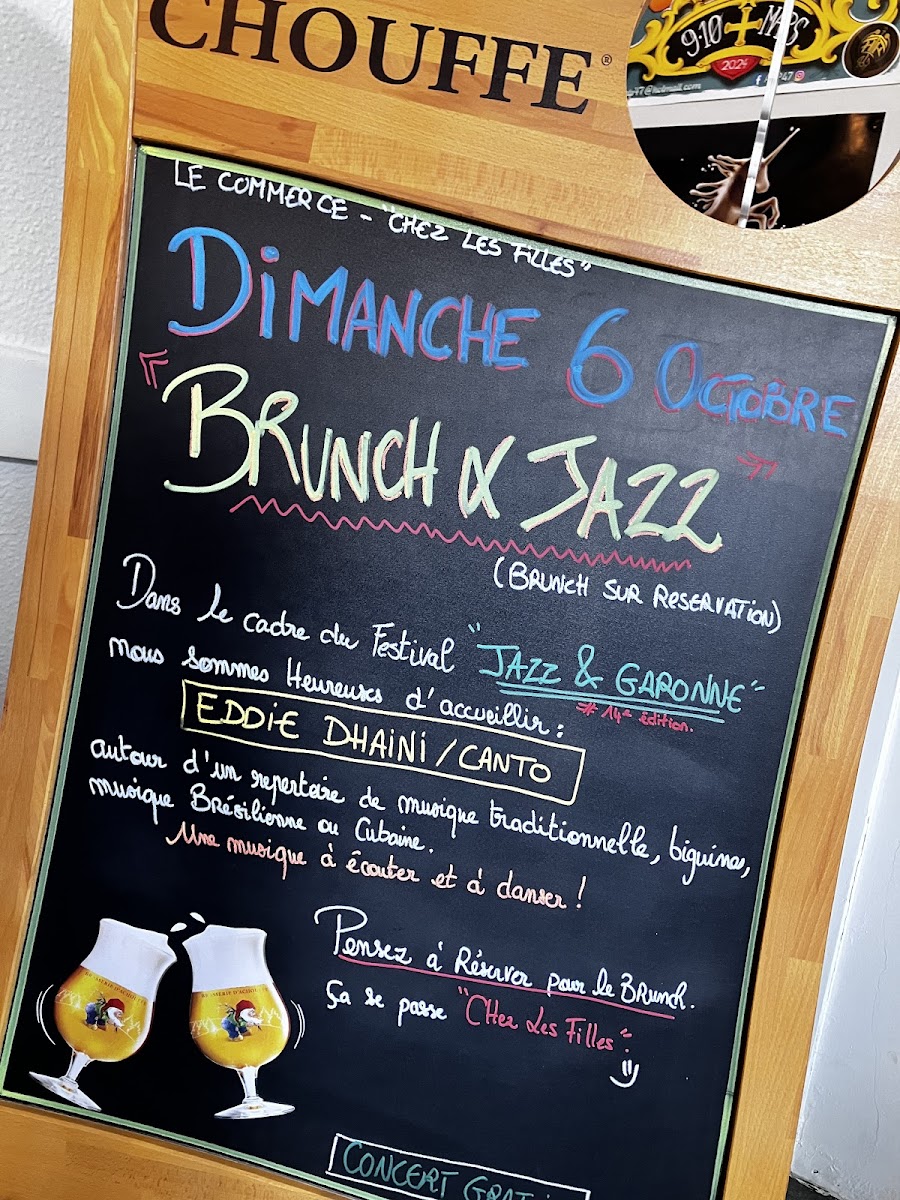 CHOUFFE®
9-10 MARS
2024
47@hotmail.com
LE COMMERCE - "CHEZ LES FILLES"
DIMANCHE 6 OCTOBRE
"BRUNCH & JAZZ"
(BRUNCH SUR RESERVATION)
Dans le cadre du Festival "JAZZ & GARONNE"
# 14e édition.
nous sommes Heureuses d'accueillir :
EDDIE DHAINI / CANTO
autour d'un repertoire de musique traditionnelle, biguines,
musique Brésilienne ou Cubaine.
Une musique à écouter et à danser !
Pensez à Réserver pour le Brunch.
Ça se passe "CHez Les Filles".
CONCERT